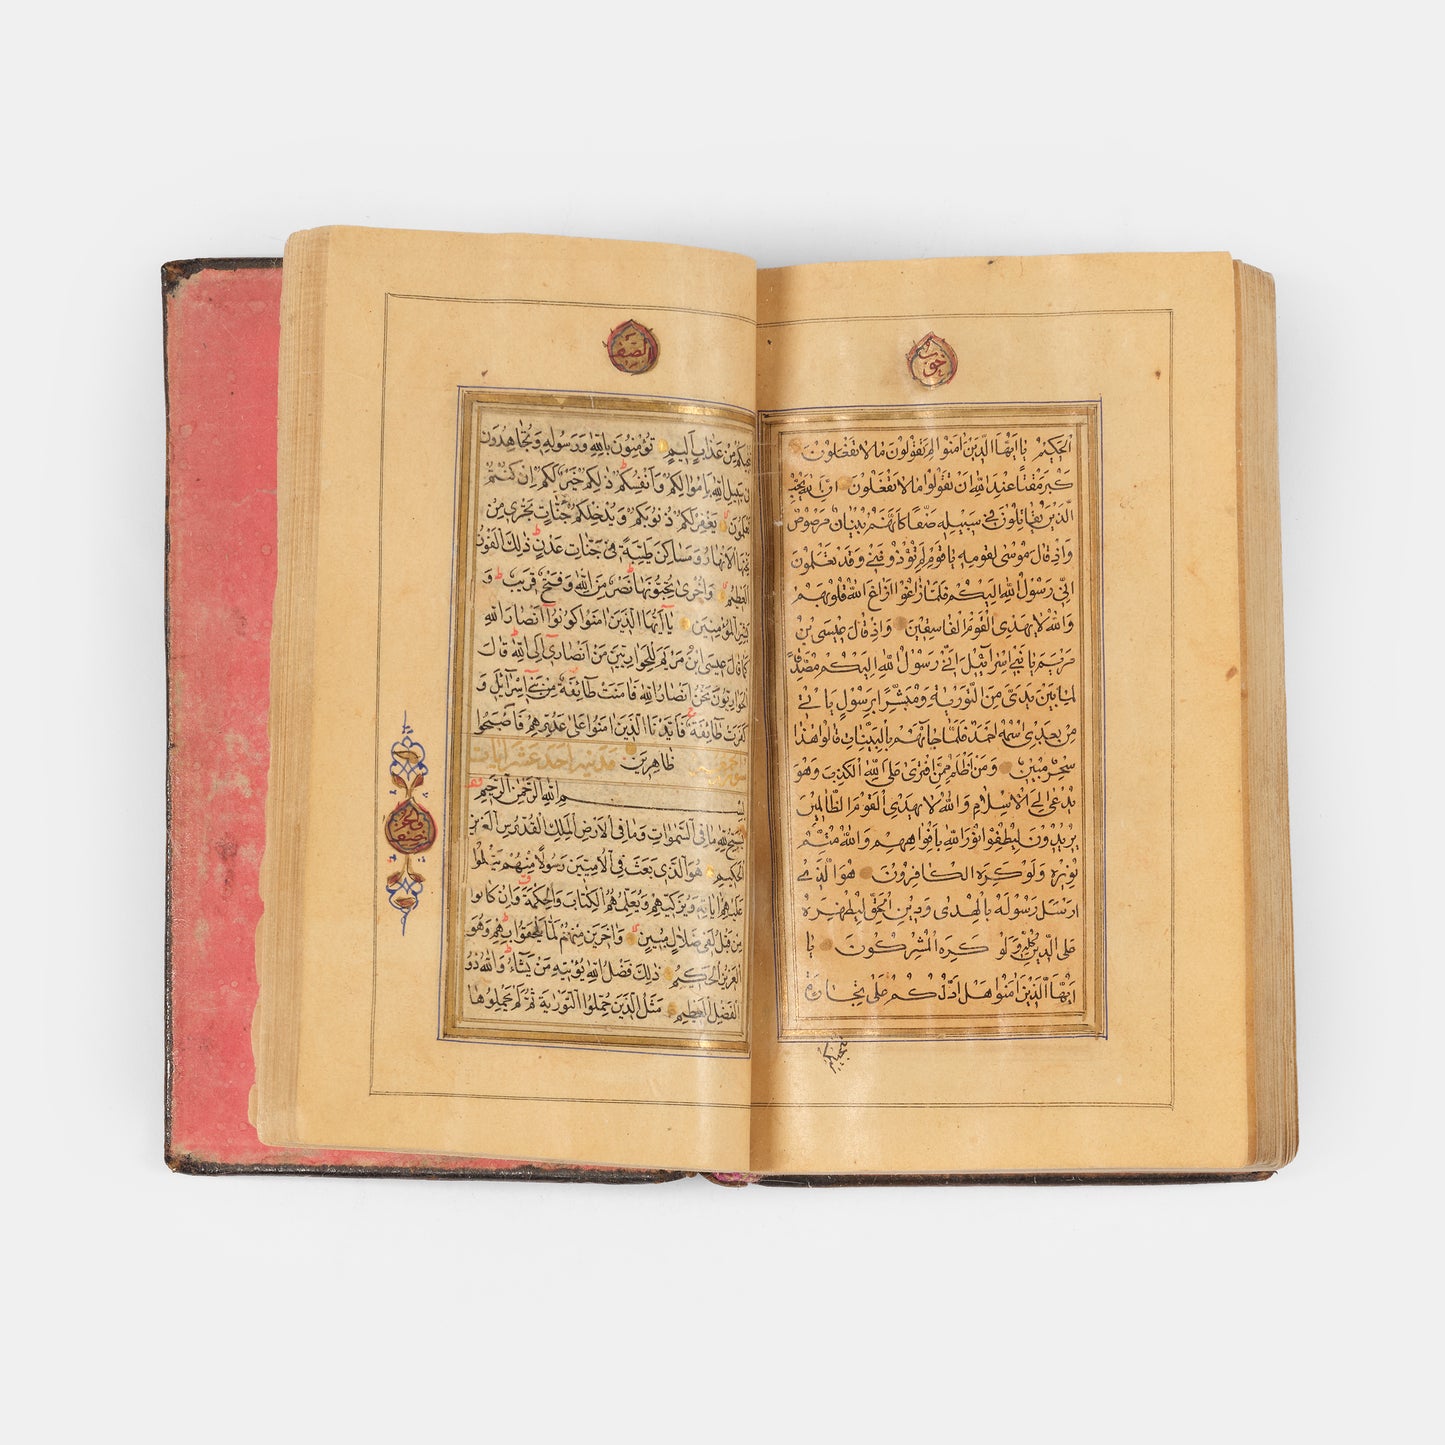 الحكيم يا ايها الذين آمنوا لم تقولون ما لا تفعلون
كبر مقتا عند الله ان تقولوا ما لا تفعلون ان الله يحب
الذين يقاتلون في سبيله صفا كانهم بنيان مرصوص
واذ قال موسى لقومه يا قوم لم تؤذونني وقد تعلمون
اني رسول الله اليكم فلما زاغوا ازاغ الله قلوبهم
والله لا يهدي القوم الفاسقين واذ قال عيسى بن
مريم يا بني اسرائيل اني رسول الله اليكم مصدقا
لما بين يدي من التورية ومبشرا برسول ياتي
من بعدي اسمه احمد فلما جاءهم بالبينات قالوا هذا
سحر مبين ومن اظلم ممن افترى على الله الكذب وهو
يدعى الى الاسلام والله لا يهدي القوم الظالمين
يريدون ليطفؤا نور الله بافواههم والله متم
نوره ولو كره الكافرون هو الذي
ارسل رسوله بالهدى ودين الحق ليظهره
على الدين كله ولو كره المشركون يا
ايها الذين آمنوا هل ادلكم على تجارة
تنجيكم
الصف
تنجيكم من عذاب اليم تؤمنون بالله ورسوله وتجاهدون
في سبيل الله باموالكم وانفسكم ذلكم خير لكم ان كنتم
تعلمون يغفر لكم ذنوبكم ويدخلكم جنات تجري من
تحتها الانهار ومساكن طيبة في جنات عدن ذلك الفوز
العظيم واخرى تحبونها نصر من الله وفتح قريب و
بشر المؤمنين يا ايها الذين امنوا كونوا انصار الله
كما قال عيسى ابن مريم للحواريين من انصاري الى الله قال
الحواريون نحن انصار الله فامنت طائفة من بني اسرائيل و
كفرت طائفة فايدنا الذين امنوا على عدوهم فاصبحوا
ظاهرين مدنية احدى عشر ايات
بسم الله الرحمن الرحيم
يسبح لله ما في السموات وما في الارض الملك القدوس العزيز
الحكيم هو الذي بعث في الاميين رسولا منهم يتلوا
عليهم اياته ويزكيهم ويعلمهم الكتاب والحكمة وان كانوا
من قبل لفي ضلال مبين واخرين منهم لما يلحقوا بهم وهو
العزيز الحكيم ذلك فضل الله يؤتيه من يشاء والله ذو
الفضل العظيم مثل الذين حملوا التورية ثم لم يحملوها